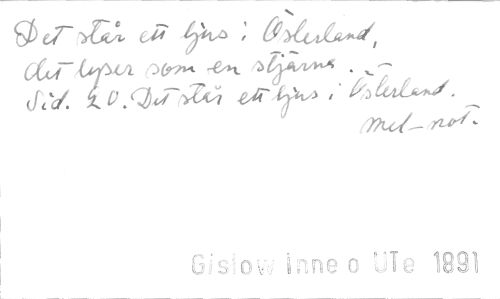 Det står ett ljus i Österland,
det lyser som en stjärna.
Sid. 20. Det står ett ljus i Österland.
mel-not.
Gislow Inne o UTe 1891